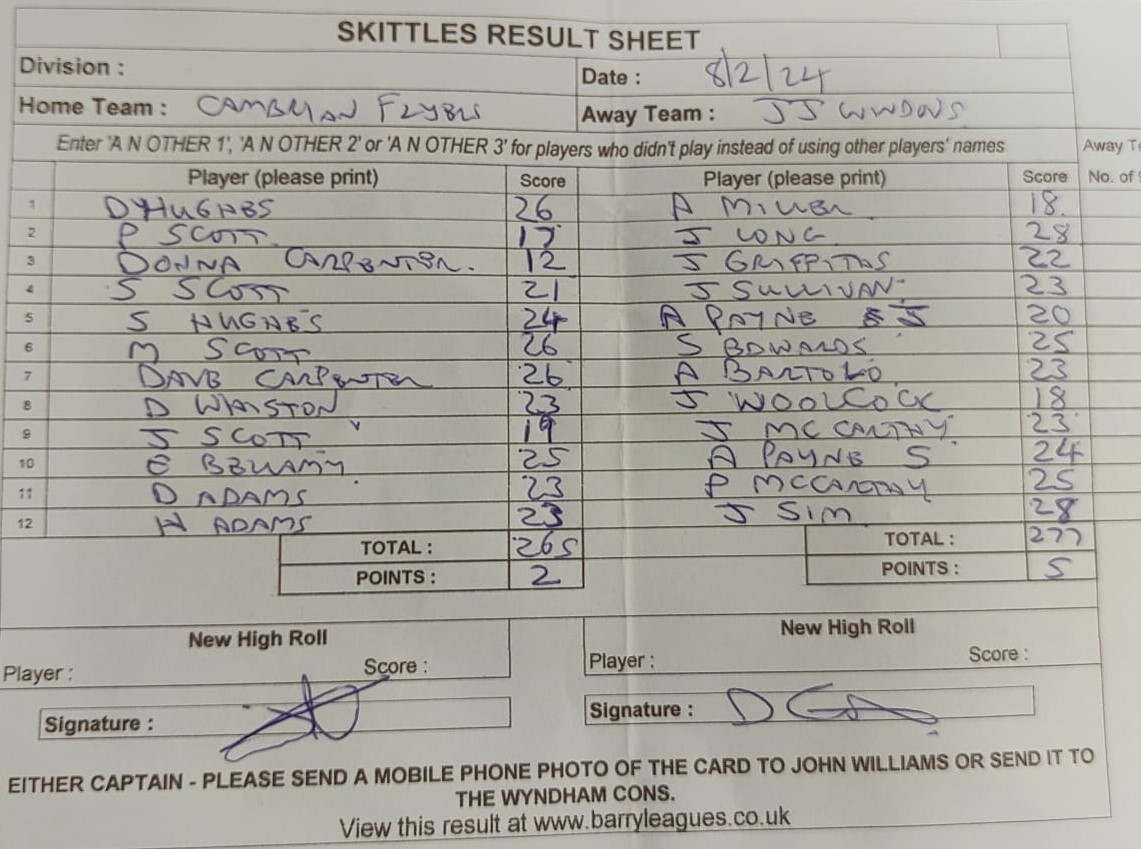 SKITTLES RESULT SHEET
Division : Date : 8/2/24
Home Team : CAMBRIAN FLYERS Away Team : JJ WINDOWS
Enter 'A N OTHER 1', 'A N OTHER 2' or 'A N OTHER 3' for players who didn't play instead of using other players' names Away Te
Player (please print) Score Player (please print) Score No. of
1 D HUGHES 26 A MILLER 18
2 P SCOTT 17 J LONG 28
3 DONNA CARPENTER. 12 J GRIFFITHS 22
4 S SCOTT 21 J SULLIVAN 23
5 S HUGHES 24 A PAYNE J 20
6 M SCOTT 26 S EDWARDS 25
7 DAVE CARPENTER 26 A BARTOLO 23
8 D WHISTON 23 J WOOLCOCK 18
9 J SCOTT 19 J MCCARTHY 23
10 E BELLAMY 25 A PAYNE S 24
11 D ADAMS 23 P MCCARTHY 25
12 H ADAMS 23 J SIM 28
TOTAL : 265 TOTAL : 277
POINTS : 2 POINTS : 5
New High Roll New High Roll
Player : Score : Player : Score :
Signature : Signature :
EITHER CAPTAIN - PLEASE SEND A MOBILE PHONE PHOTO OF THE CARD TO JOHN WILLIAMS OR SEND IT TO
THE WYNDHAM CONS.
View this result at www.barryleagues.co.uk